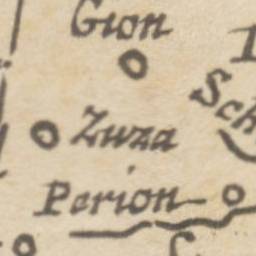 Gion
Sch
Zuza
Perion